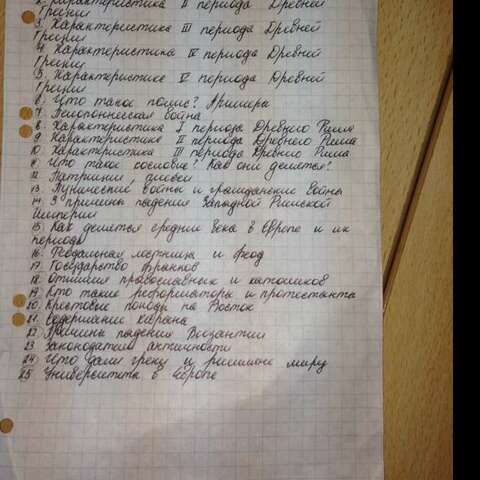 2. Характеристика II периода Древней
Греции
3. Характеристика III периода Древней
Греции
4. Характеристика IV периода Древней
Греции
5. Характеристика V периода Древней
Греции
6. Что такое полис? Примеры
7. Пелопонесская война
8. Характеристика I периода Древнего Рима
9. Характеристика II периода Древнего Рима
10. Характеристика III периода Древнего Рима
11. Что такое сословие? Как они делятся?
12. Патриции, плебеи
13. Пунические войны и гражданские войны
14. 3 причины падения Западной Римской
Империи
15. Как делятся средние века в Европе и их
периоды
16. Феодальная лестница и феод
17. Государство франков
18. Отличия православных и католиков
19. Кто такие реформаторы и протестанта
20. Крестовые походы на Восток
21. Содержание Карана
22. Причины падения Византии
23 Законодатели античности
24. Что дали греки и римляне миру
25 Университеты в Европе